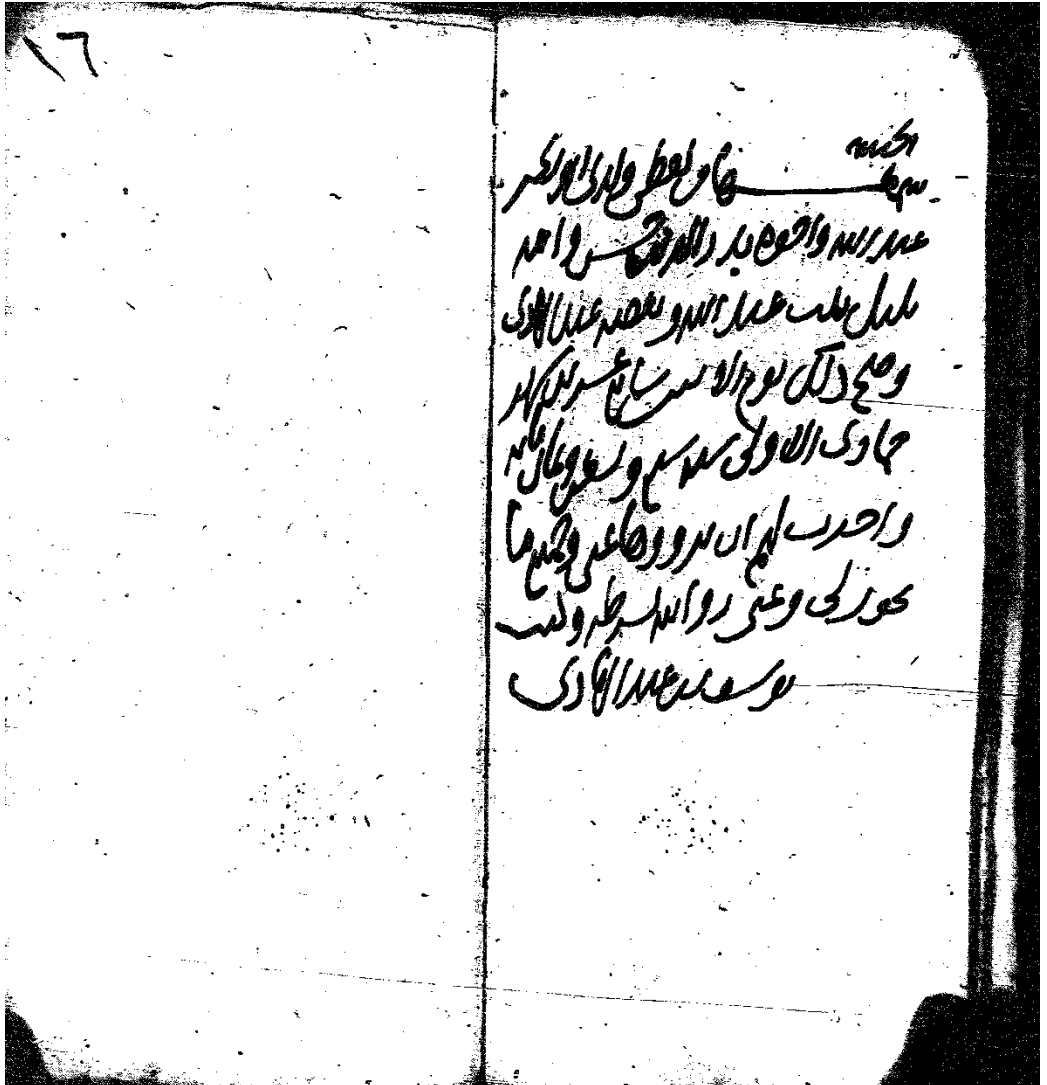 ١٦
الحمد لله
سمع هذا من لفظي ولدي ابو بكر
عبد الله واخوه بدر الدين حسن وامه
بلبل بنت عبد الله وبعضه عبد الهادي
وصح ذلك يوم الاثنين سابع عشرين شهر
جمادى الاولى سنة سبع وتسعين وثمان مائة
واجزت لهم ان يرووها عني وجميع ما
يجوز لي وعني روايته بشرطه وكتب
يوسف بن عبد الهادي